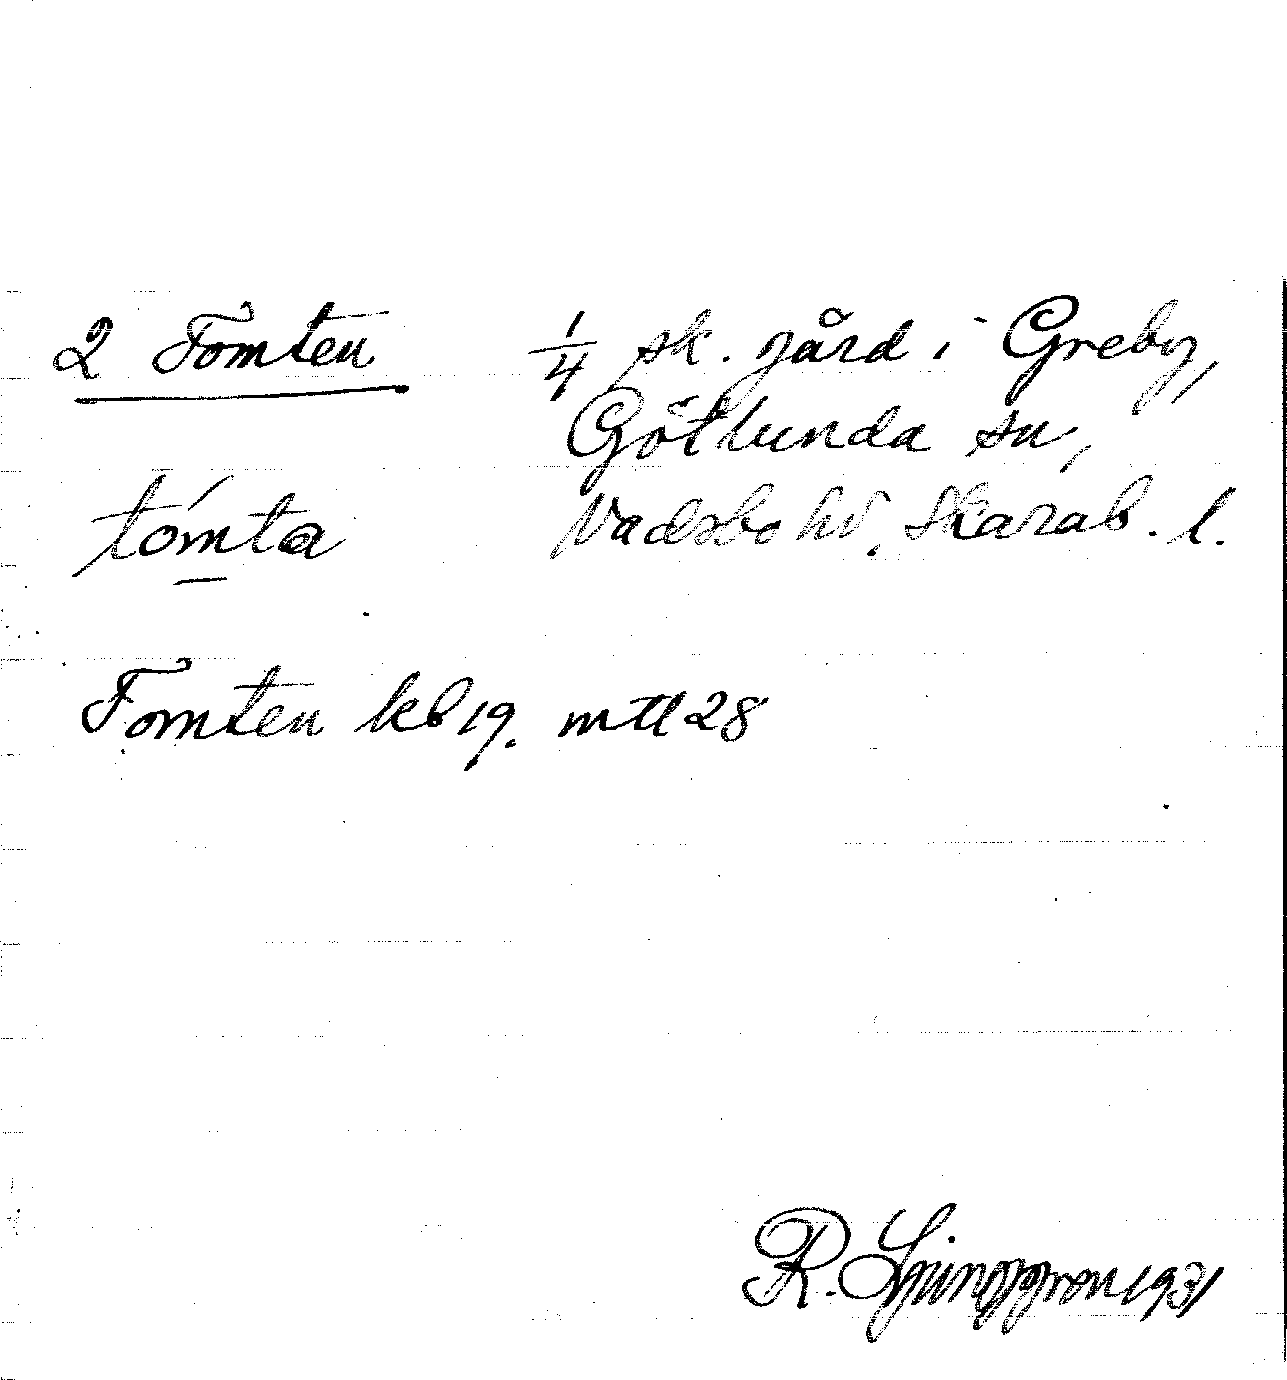 2 Tomten 1/4 sk. gård i Greby,
Götlunda sn,
tómta Vadsbo hd. Skarab. l.
Tomten kb 19. mtl 28
R. Ljunggren 1931